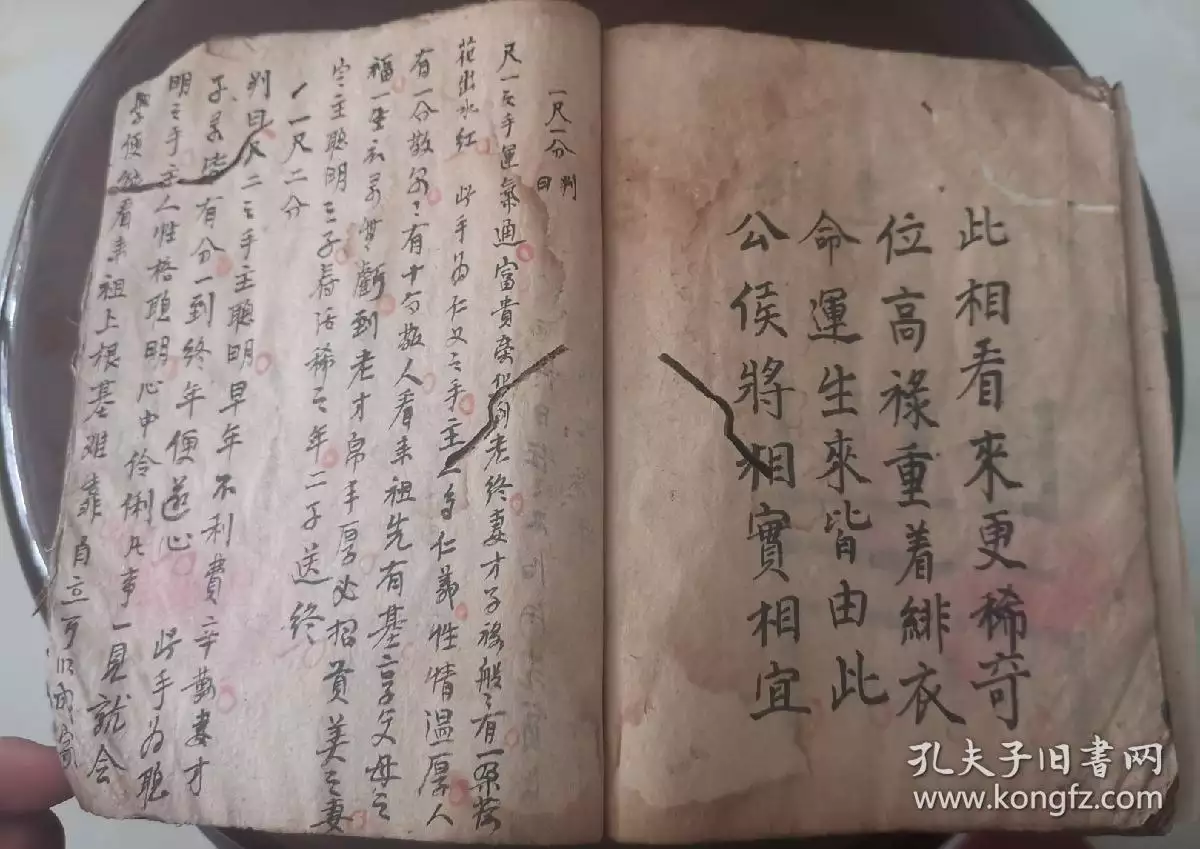 此相看來更稀奇
位高祿重着緋衣
命運生來皆由此
公侯將相實相宜
一尺一分判曰
尺一之手運氣通富貴榮到老終妻才子祿般〻有一朵荷
花出水紅 此手為仁义之手主人多仁義性情温厚人
有一分敬尔〻有十分敬人看来祖先有基享父母之
福一生衣彔無虧到老才帛丰厚必招賢美之妻
定主聰明之子春活稀之年二子送終
一尺二分
判曰尺二之手主聰明早年不利費辛勤妻才
子彔皆有分一到終年便遂心 此手为聪
明之手主人性格聪明心中伶俐凡事一見就会
學便能看来祖上根基难靠自立可以成富
孔夫子旧书网
www.kongfz.com